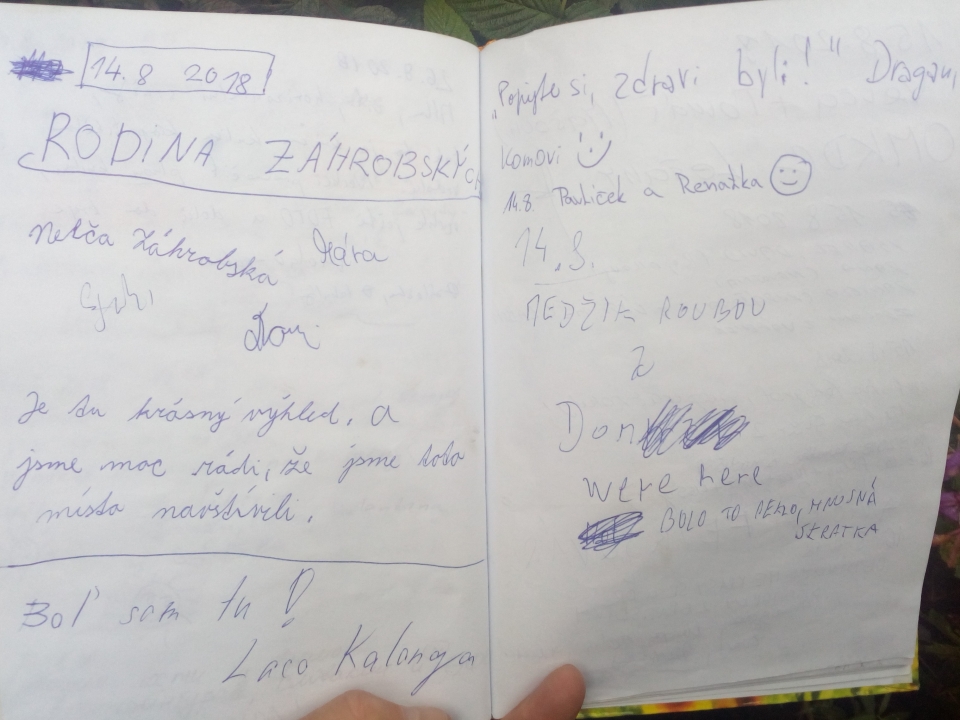 14.8 2018
RODINA ZÁHROBSKÝCH
Nelča Záhrobská
Mára
Je tu krásný výhled. a
jsme moc rádi, že jsme toto
místo navštívili.
Bol sam tu!
Laco Kalanga
"Popijte si, zdraví byli!" Dragan,
Komovi
14.8. Pavlíček a Renatka
14.8.
MEDŽIK ROUBOU
Z
Don
were here
BOLO TO PEKLO, HNUSNÁ
SKRATKA